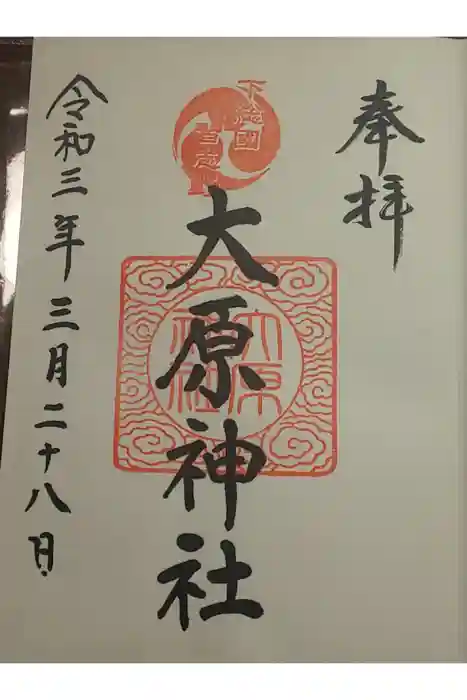 奉拝
下総國
大原神社
大原
神社
令和三年三月二十八日